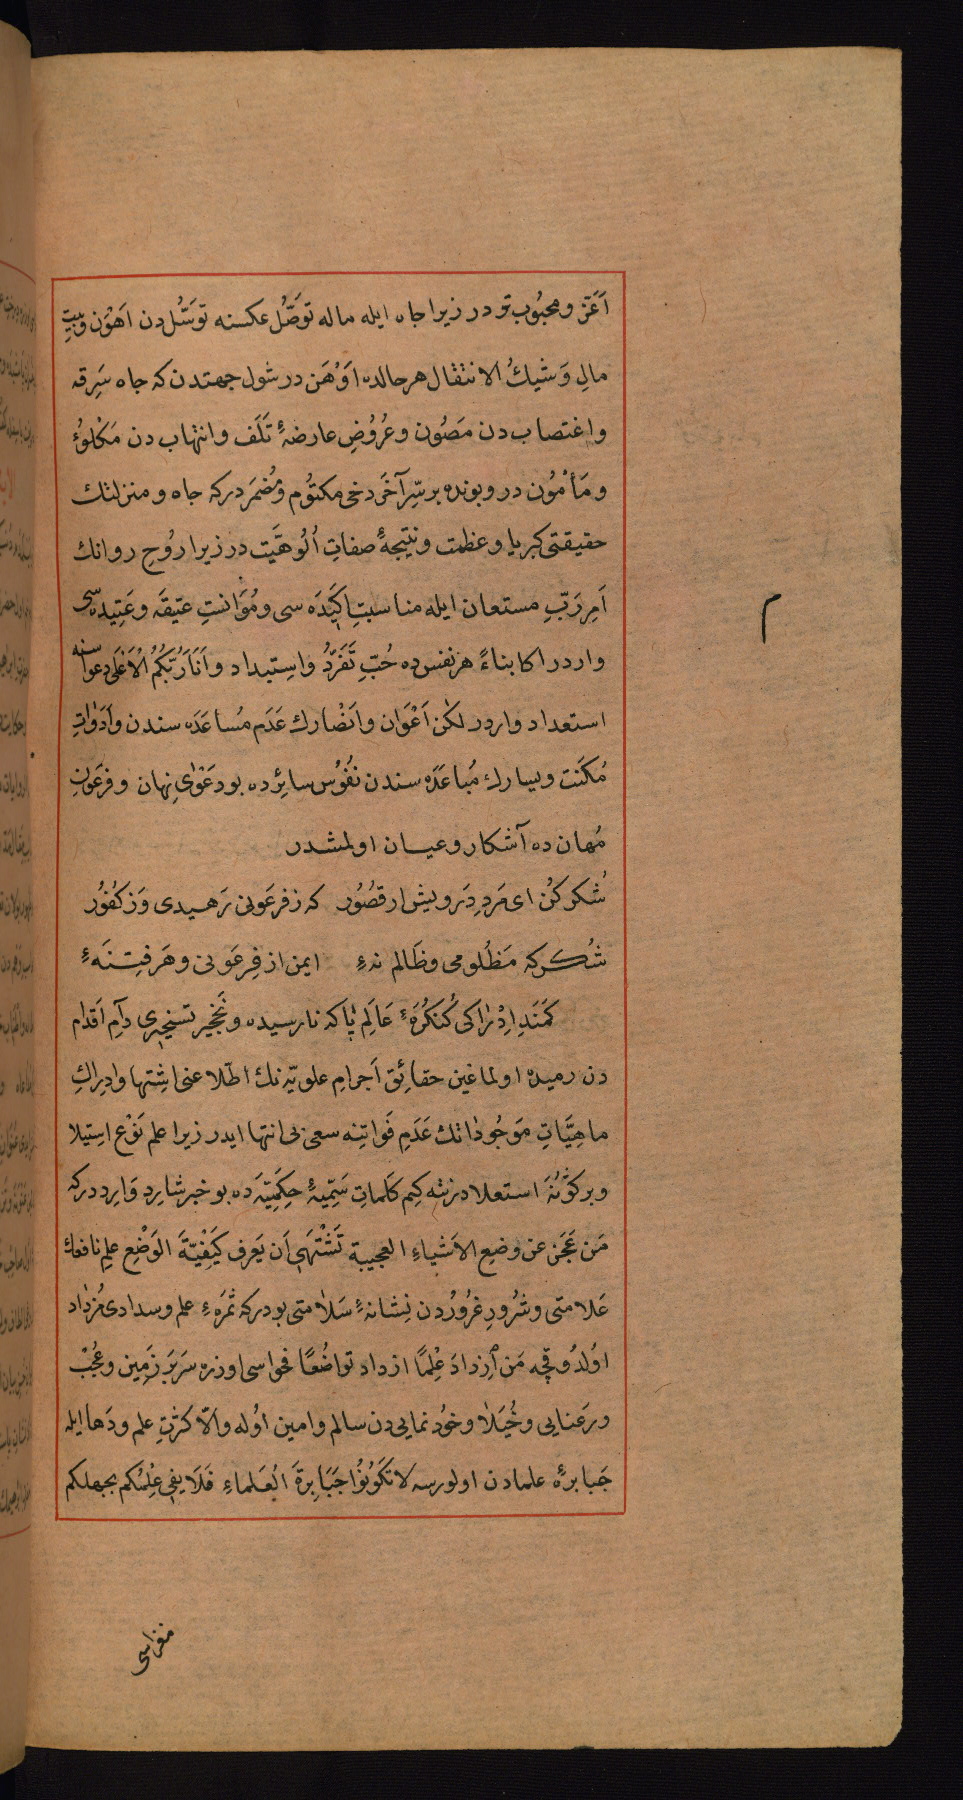 اَعَزّ و محبُوب تو در زيرا جاه ايله ماله توَصّل عكسنه توَسّل دن اهْوَن و بيتِ
مالِ وَشيكُ الانتقال هر حالده اَوْهَن در شول جهتدن كه جاه سَرِقه
و اغتصاب دن مَصُون و عُرُوضِ عارضهٔ تَلَف و انتهاب دن مَكْلوُءْ
و مَأْمُون در و بونده بر سِرِّ آخَر دخى مكتُوم و مُضمَر در كه جاه و منزلتك
حقيقتى كبريا و عظمت و نتيجهٔ صفاتِ اُلُوهَيّت در زيرا رُوحِ روانك
اَمرِ رَبِّ مستعان ايله مناسبتِ اَكيَدَه سى و مُؤانستِ عَتيقَه و عَتِيده سى
واردر اكا بناءً هر نفس ده حُبِّ تَفَرُّد و اِستبداد و اَنَا رَبُّكُمُ الْاَعْلَى دعواسنه
استعداد واردر لكن اَعْوَان و اَنْصارك عَدَم مُساعَدَه سندن و اَدَوٰاتِ
مُكنَت و يسارك مُباعَدَه سندن نفُوْسِ سائِرْده بو دَعْوٰاىِ نهان و فرعَونِ
مُهان ده آشكار و عيان اولمشدر
شُكر كُن اى مَردِ دَرويش از قصُوُر كه ز فرعَونى رَهيدى وَز كفُوُر
شُكر كه مَظْلومى و ظَالم نهٔ ايمن از فِرعَونى و هَر فِتنَهٔ
كَمَندِ اِدْرٰاكى كُنكُرَهٔ عَالَمِ پاكه نارسيده و نَخجير تسخيرى دآمِ اَقدام
دن رميده اولماغين حقائِق اَجرامِ علويّه نك اطّلاعنى اشِتها و ادِراكِ
ماهِيَّاتِ مَوجُودٰاتك عَدَمِ فَواتِنه سعى بى انتها ايدر زيرا علم نَوْعِ اسِتيلا
و بر كوُنه استعلادر نته كِيم كلماتِ سَمِيّهٔ حِكَميّه ده بو خبر شارِد وَارِد دركه
مَن عَجَزَ عن وضِعِ الاَشياءِ العجيبة تَشْتَهى اَن يَعرف كَيَفيّةَ الوَضْعِ علمِ نافعك
عَلامتى و شرُورِ غرُوُرْدن نِشانهٔ سَلامتى بودركه ثمَرهٔ علم و سدادى مُزداد
اوُلدُوقچه مَن اِزدادَ عْلِمًا ازداد تواضُعًا فحواسى اوزره سَربَر زَمِين و عُجْب
و رَعنايى و خُيَلا و خوُد نمايى دن سالم و امين اوُله والاّ كثرتِ علم و دَها ايله
جَبابرهٔ علمادن اولورسه لا تكوُنوُا جَبابِرةَ العُلماءِ فَلَا يفى عِلْمكُم بجهلكم